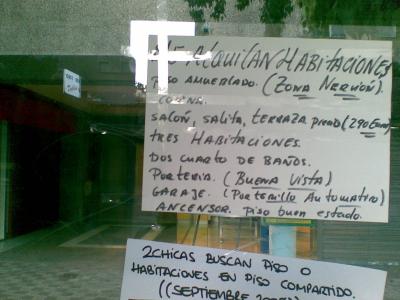 Se Alquilan Habitaciones
Piso Amueblado. (Zona Nervión).
Cocina.
Salón, Salita, Terraza precio (290 Euros)
Tres Habitaciones.
Dos cuarto de baños.
Portería. (Buena Vista)
Garaje. (Portenillo Automatiro)
Ancensor. Piso buen estado.
2 chicas buscan piso o
habitaciones en piso compartido.
((Septiembre